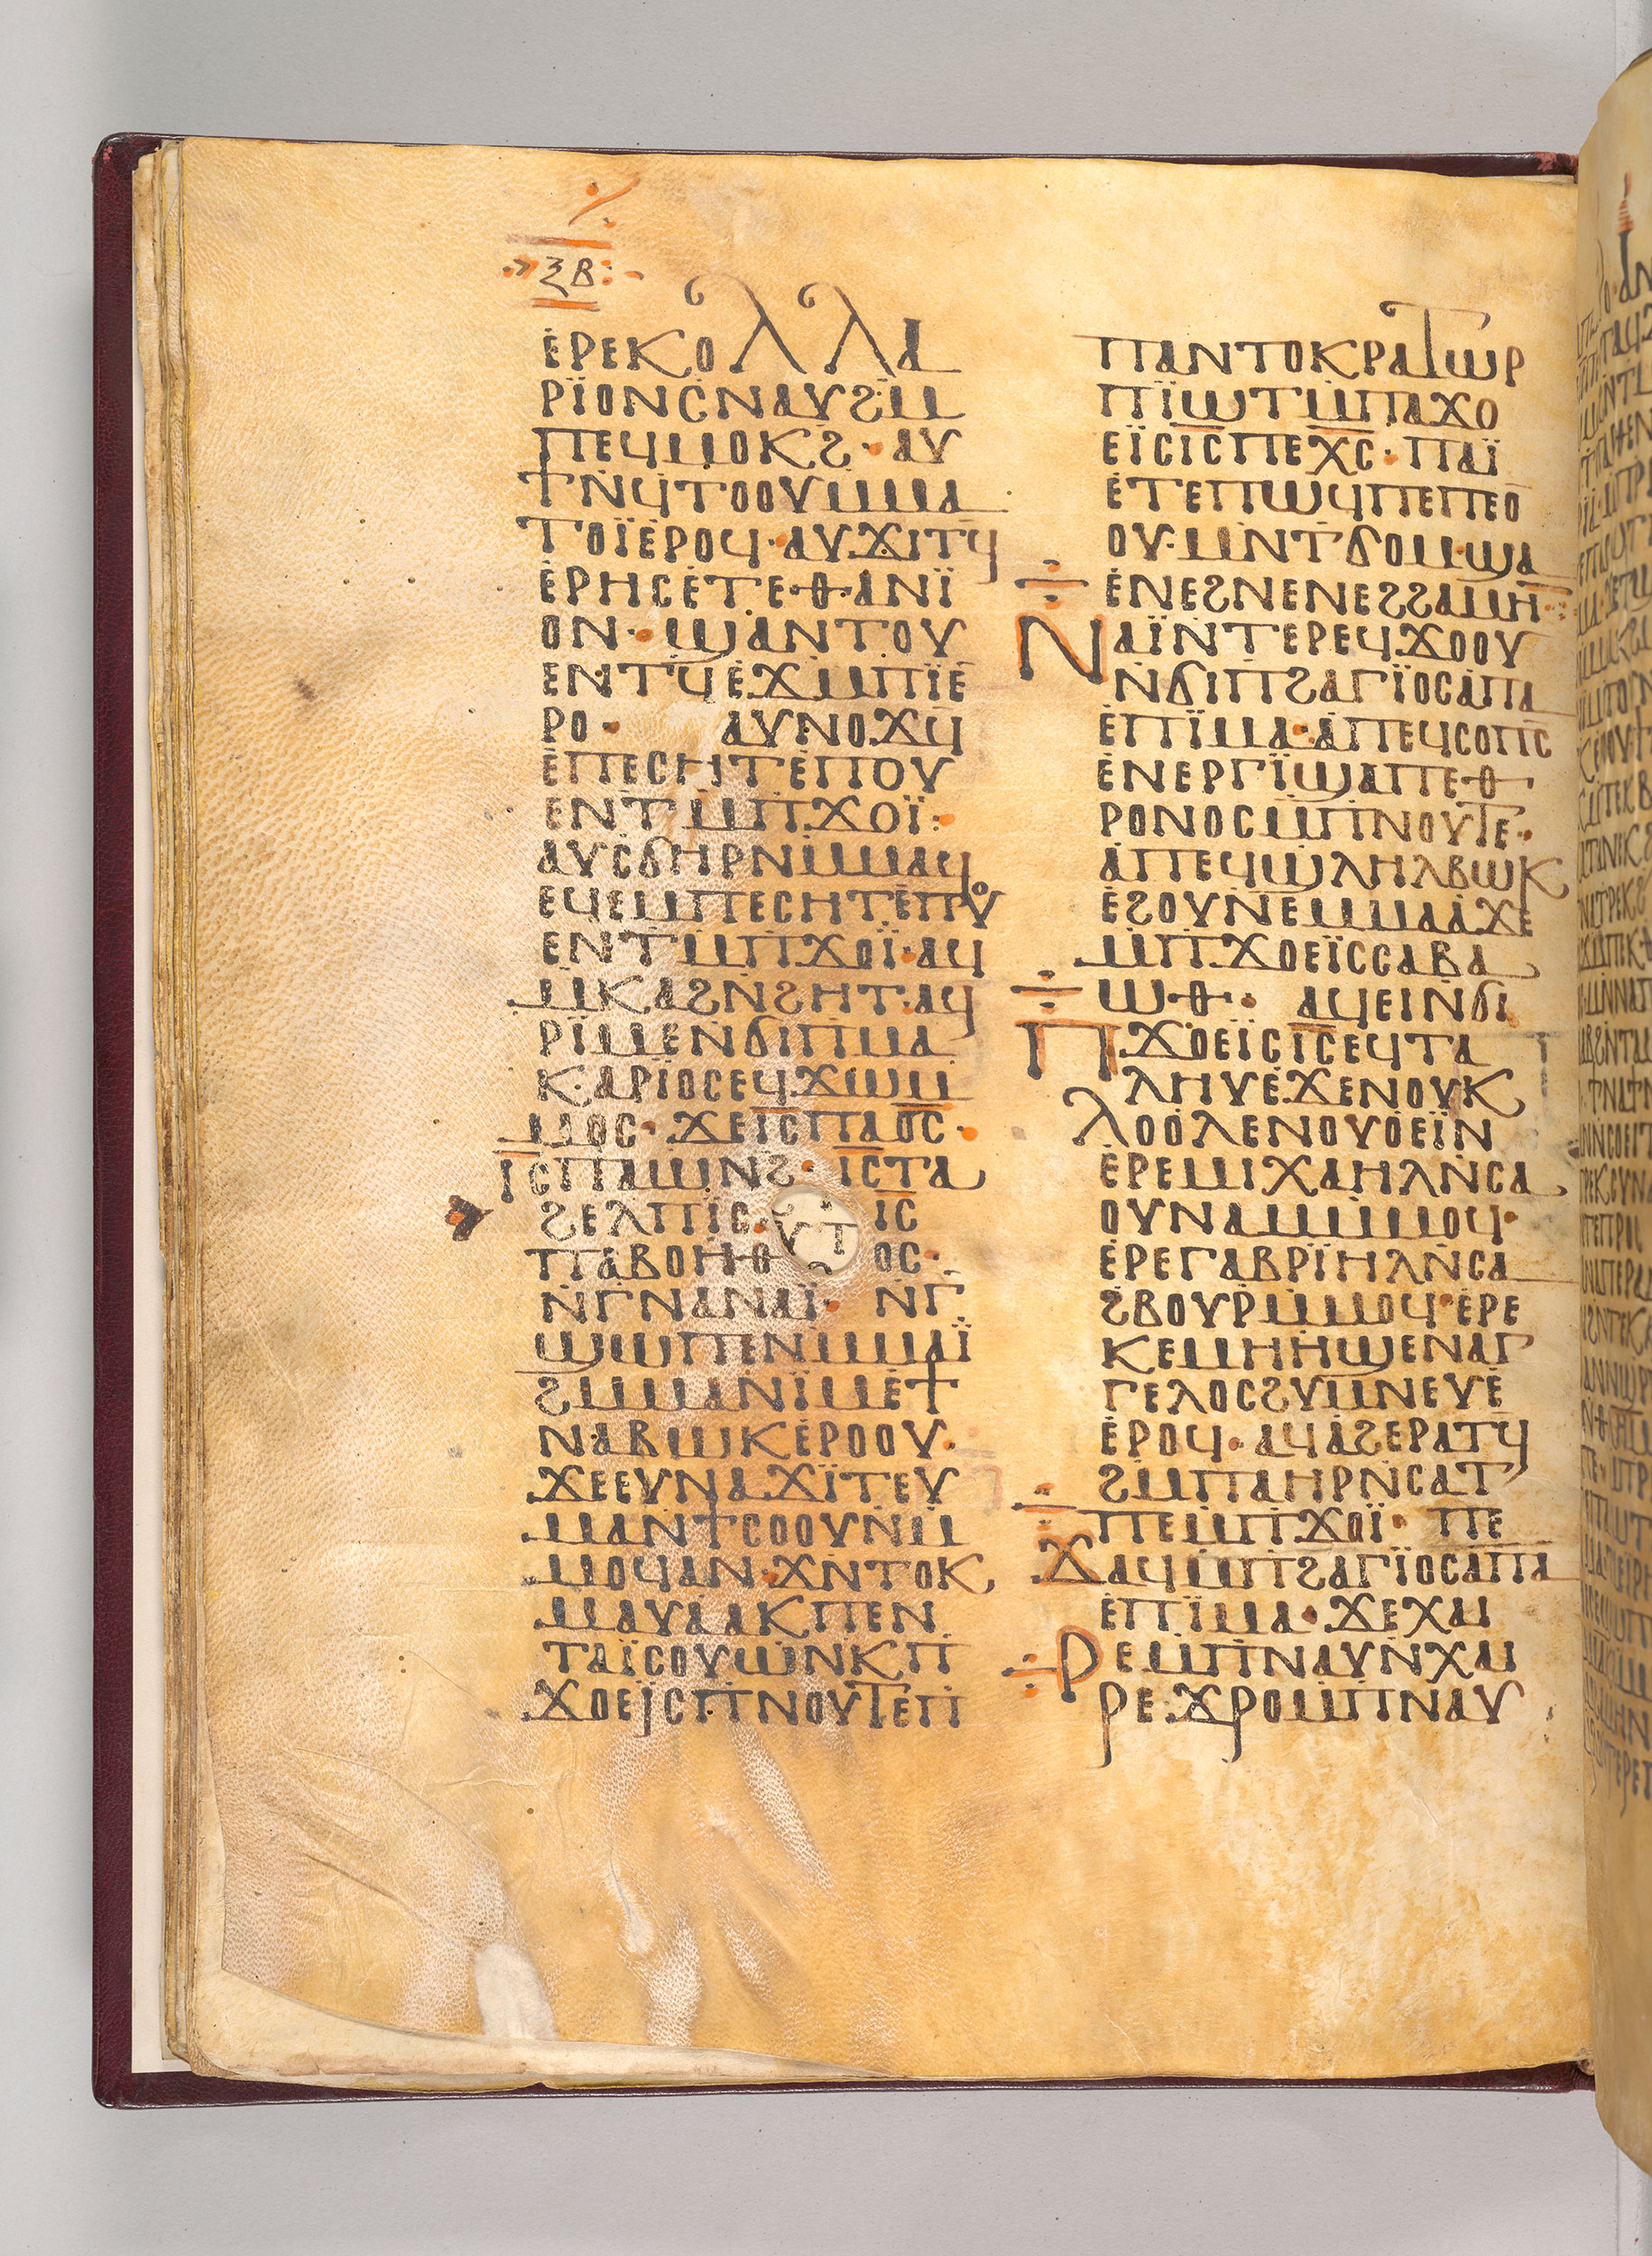 ⲝⲃ
ⲉⲣⲉⲕⲟⲗⲗⲁ
ⲣⲓ̈ⲟⲛⲥⲛⲁⲩϩⲙ̄
ⲡⲉϥⲙⲟⲕϩ· ⲁⲩ
ϯⲛϥⲧⲟⲟⲩⲙ̄ⲙⲁ
ⲧⲟⲓ̈ⲉⲣⲟϥ·ⲁⲩϫⲓⲧϥ
ⲉⲣⲏⲥⲉⲧⲉⲑⲁⲛⲓ̈
ⲟⲛ· ϣⲁⲛⲧⲟⲩ
ⲉⲛⲧϥⲉϫⲙ̄ⲡⲓ̈ⲉ
ⲣⲟ· ⲁⲩⲛⲟϫϥ
ⲉⲡⲉⲥⲏⲧⲉⲡⲟⲩ
ⲉⲛⲧⲙ̄ⲡϫⲟⲓ̈:
ⲁⲩⲥϭⲏⲣⲛⲙ̄ⲙⲁϥ
ⲉϥⲉⲙⲡⲉⲥⲏⲧⲉⲡⲟⲩ
ⲉⲛⲧⲙ̄ⲡϫⲟⲓ̈·ⲁϥ
ⲙ̄ⲕⲁϩⲛ̄ϩⲏⲧ·ⲁϥ
ⲣⲓ̈ⲙⲉⲛϭⲓⲡⲙⲁ
ⲕⲁⲣⲓⲟⲥⲉϥϫⲱⲙ̄
ⲙⲟⲥ· ϫⲉⲓ̄ⲥ̄ⲡⲁⲟ̄ⲥ̄·
ⲓ̄ⲥ̄ⲡⲁⲱⲛϩ· ⲓ̄ⲥ̄ⲧⲁ
ϩⲉⲗⲡⲓⲥ· ⲓ̄ⲥ̄
ⲡⲁⲃⲟⲏⲑⲟⲥ·
ⲛ̄ⲅⲛⲁⲛⲁⲓ̈· ⲛⲅ̄
ϣⲱⲡⲉⲛⲙ̄ⲙⲁⲓ̈
ϩⲙ̄ⲙⲁⲛⲓ̈ⲙⲉϯ
ⲛⲁⲃⲱⲕⲉⲣⲟⲟⲩ·
ϫⲉⲉⲩⲛⲁϫⲓ̈ⲧⲉⲩ
ⲙⲁⲛϯⲥⲟⲟⲩⲛⲙ̄
ⲙⲟϥⲁⲛ·ϫⲛⲧⲟⲕ
ⲙⲁⲩⲁⲁⲕⲡⲉⲛ
ⲧⲁⲓ̈ⲥⲟⲩⲱⲛⲕⲡ
ϫⲟⲉⲓⲥⲡⲛⲟⲩⲧⲉⲡ
ⲡⲁⲛⲧⲟⲕⲣⲁⲧⲱⲣ
ⲡⲓ̈ⲱⲧⲙ̄ⲡⲁϫⲟ
ⲉⲓ̈ⲥⲓ̄ⲥ̄ⲡⲉⲭ̄ⲥ̄· ⲡⲁⲓ̈
ⲉⲧⲉⲡⲱϥⲡⲉⲡⲉⲟ
ⲟⲩ·ⲙⲛⲧϭⲟⲙ·ϣⲁ
ⲉⲛⲉϩⲛⲉⲛⲉϩϩⲁⲙⲏ:
ⲛⲁⲓ̈ⲛⲧⲉⲣⲉϥϫⲟⲟⲩ
ⲛ̄ϭⲓⲡϩⲁⲅⲓ̈ⲟⲥⲁⲡⲁ
ⲉⲡⲓ̈ⲙⲁ·ⲁⲡⲉϥⲥⲟⲡⲥ
ⲉⲛⲉⲣⲅⲓ̈ϣⲁⲡⲉⲑ
ⲣⲟⲛⲟⲥⲙ̄ⲡⲛⲟⲩⲧⲉ·
ⲁⲡⲉϥϣⲗⲏⲗⲃⲱⲕ
ⲉϩⲟⲩⲛⲉⲙⲙⲁⲁϫⲉ
ⲙ̄ⲡϫⲟⲉⲓ̈ⲥⲥⲁⲃⲁ
ⲱⲑ· ⲁϥⲉⲓⲛϭⲓ
ⲡϫⲟⲉⲓ̈ⲥⲓ̄ⲥ̄ⲉϥⲧⲁ
ⲗⲏⲩⲉϫⲉⲛⲟⲩⲕ
ⲗⲟⲟⲗⲉⲛⲟⲩⲟⲉⲓ̈ⲛ
ⲉⲣⲉⲙⲓⲭⲁⲏⲗⲛ̄ⲥⲁ
ⲟⲩⲛⲁⲙⲙ̄ⲙⲟϥ·
ⲉⲣⲉⲅⲁⲃⲣⲓ̈ⲏⲗⲛ̄ⲥⲁ
ϩⲃⲟⲩⲣⲙ̄ⲙⲟϥ·ⲉⲣⲉ
ⲕⲉⲙⲏⲏϣⲉⲛⲁⲅ
ⲅⲉⲗⲟⲥϩⲩⲙⲛⲉⲩⲉ
ⲉⲣⲟϥ·ⲁϥⲁϩⲉⲣⲁⲧϥ
ϩⲙ̄ⲡⲁⲏⲣⲛ̄ⲥⲁⲧ
ⲡⲉⲙ̄ⲡϫⲟⲓ̈· ⲡⲉ
ϫⲁϥⲙ̄ⲡϩⲁⲅⲓ̈ⲟⲥⲁⲡⲁ
ⲉⲡⲓ̈ⲙⲁ· ϫⲉⲭⲁⲓ
ⲣⲉⲙ̄ⲡⲛⲁⲩⲛ̄ⲭⲁⲓ
ⲣⲉ·ϫⲣⲟⲙ̄ⲡⲛⲁⲩ